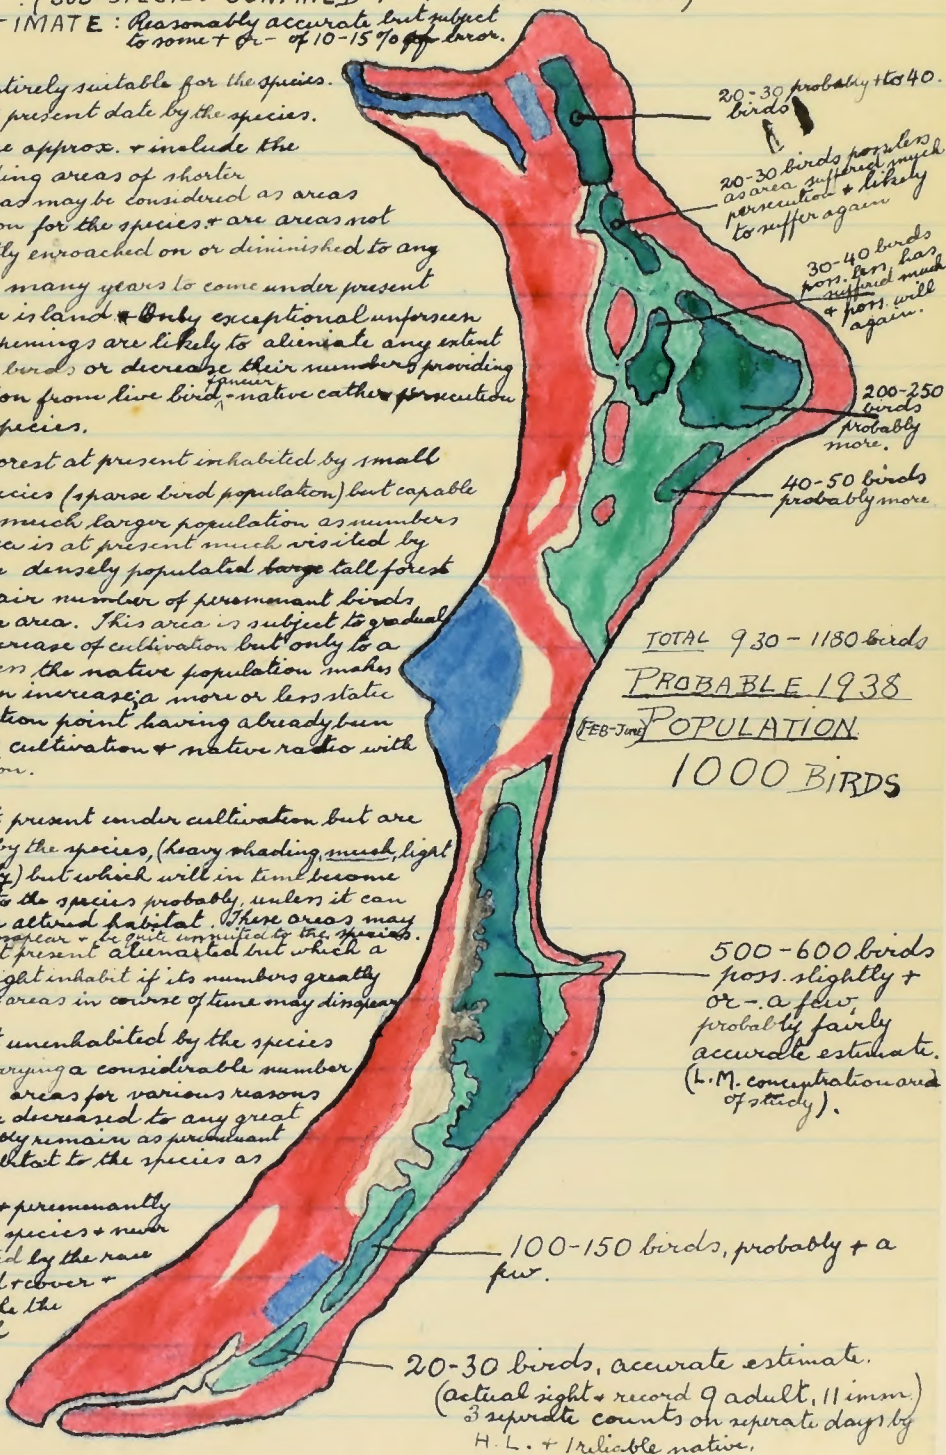 IMATE: Reasonably accurate but subject
to some + or - of 10-15% of error.
tirely suitable for the species.
present date by the species.
e approx. + include the
ing areas of shorter
as may be considered as areas
on for the species + are areas not
ly enroached on or diminished to any
many years to come under present
island + Only exceptional unforseen
penings are likely to alieniate any extent
birds or decrease their numbers, providing
on from live bird fancier - native cather persecution
pecies.
orest at present inhabited by small
ecies (sparse bird population) but capable
much larger population as numbers
ea is at present much visited by
densely populated large tall forest
air number of peremenant birds
area. This area is subject to gradual
crease of cultivation but only to a
ess the native population makes
n increase; a more or less static
tion point having already been
cultivation + native radio with
on.
present under cultivation but are
by the species, (heavy shading, much, light
) but which will in time become
to the species probably, unless it can
altered habitat. These areas may
sapear + be quite unsuited to the species.
t present alienated but which a
ight inhabit if its numbers greatly
areas in course of time may disapear
t unenhabited by the species
arying a considerable number
areas for various reasons
e decreased to any great
bly remain as peremenant
bitat to the species as
+ peremenantly
species + never
ed by the race
d + cover +
the
20-30 probably + to 40.
birds
20-30 birds poss. less
as area suffered much
persecution + likely
to suffer again
30-40 birds
poss. less, has
suffered much
+ poss. will
again.
200-250
birds
probably
more.
40-50 birds
probably more
TOTAL 930-1180 birds
PROBABLE 1938
(FEB-June) POPULATION
1000 BIRDS
500-600 birds
poss. slightly +
or -. a few,
probably fairly
accurate estimate.
(L.M. concentration area
of study).
100-150 birds, probably + a
few.
20-30 birds, accurate estimate.
(actual sight + record 9 adult, 11 imm.)
3 seperate counts on seperate days by
H.L. + 1 reliable native.